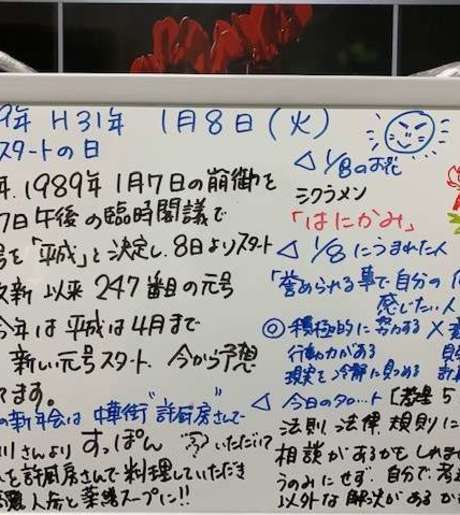 9年 H31年 1月8日(火)
スタートの日
年、1989年1月7日の崩御を
7日午後の臨時閣議で
号を「平成」と決定し、8日よりスタート
改新以来247番目の元号
今年は平成は4月まで
新しい元号スタート、今から予想
てます。
の新年会は中華街"許厨房さんで
川さんより すっぽん いただいて
を許厨房さんで料理していただき
人参と薬膳スープに!!
◁ 1/8のお花
シクラメン
「はにかみ」
◁ 1/8にうまれた人
「誉められる事で自分の
感じたい人
◎積極的に努力する ×
行動力がある
現実を冷静に見つめる
◁ 今日のタロ…ト
法則、法律、規則に
相談があるかもしれま
うのみにせず、自分で考
以外な解決があるか